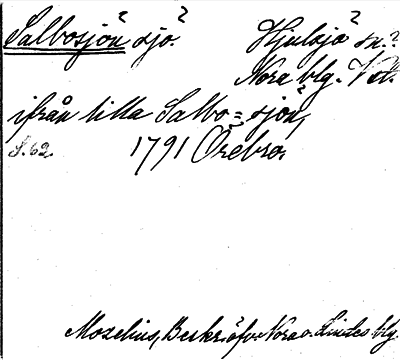 Salbosjön? sjö.? Hjulsjö? sn.?
Nora blg. Vstl.
ifrån lilla Salbo=sjön?,
S. 62. 1791 Örebro.
Mozelius, Beskr. öfv. Nora o. Lindes blg.